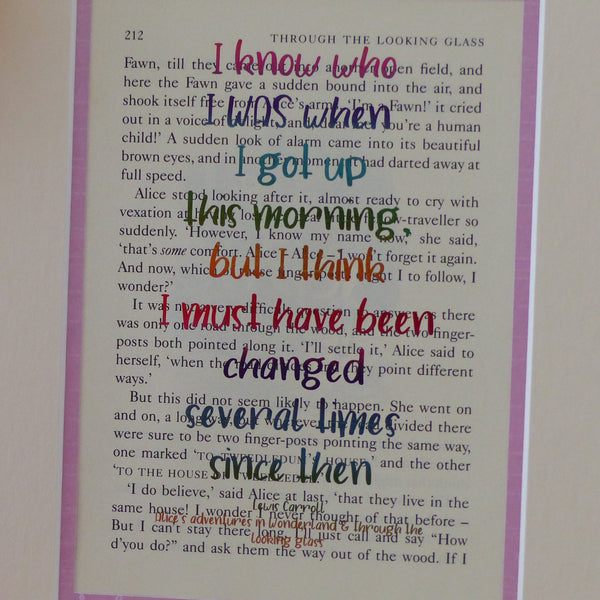 212 THROUGH THE LOOKING GLASS
Fawn, till they came out into another open field, and
here the Fawn gave a sudden bound into the air, and
shook itself free from Alice's arm. 'I'm a Fawn!' it cried
out in a voice of delight, and dear you're a human
child!' A sudden look of alarm came into its beautiful
brown eyes, and in another moment it had darted away at
full speed.
Alice stood looking after it, almost ready to cry with
vexation at having lost her dear little fellow-traveller so
suddenly. 'However, I know my name now,' she said,
'that's some comfort. Alice – Alice – I won't forget it again.
And now, which of these finger-posts ought I to follow, I
wonder?'
It was not a very difficult question to answer, as there
was only one road through the wood, and the two finger-
posts both pointed along it. 'I'll settle it,' Alice said to
herself, 'when the road divides and they point different
ways.'
But this did not seem likely to happen. She went on
and on, a long way, but wherever the road divided there
were sure to be two finger-posts pointing the same way,
one marked 'TO TWEEDLEDUM'S HOUSE,' and the other
'TO THE HOUSE OF TWEEDLEDEE.'
'I do believe,' said Alice at last, 'that they live in the
same house! I wonder I never thought of that before –
But I can't stay there long. I'll just call and say "How
d'you do?" and ask them the way out of the wood. If I
I know who
I was when
I got up
this morning,
but I think
I must have been
changed
several times
since then
Lewis Carroll
Alice's adventures in Wonderland & through the
looking glass